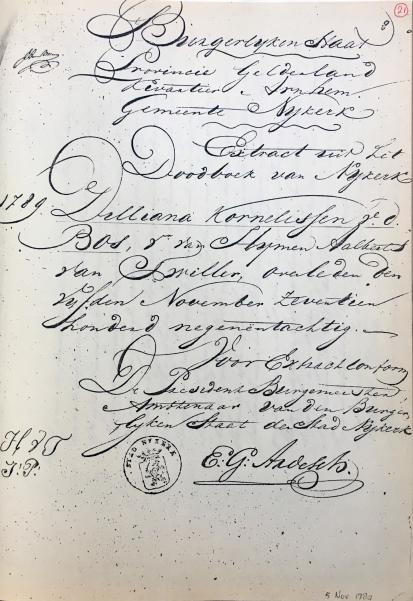 21
Burgerlyken Staat
Provincie Gelderland
Kwartier Arnhem
Gemeente Nykerk
Extract uit het
Doodboek van Nykerk
1789
Delliana Kornelissen v. d.
Bos, v. van Hymen Aalberts
van Zwiller, overleden den
vyfden November zeventien
honderd negenentachtig.
Voor Extract conform
De President Burgemeester
Amtenaar van den Burger
lyken Staat der Stad Nykerk
STAD NYKERK
5 Nov 1789